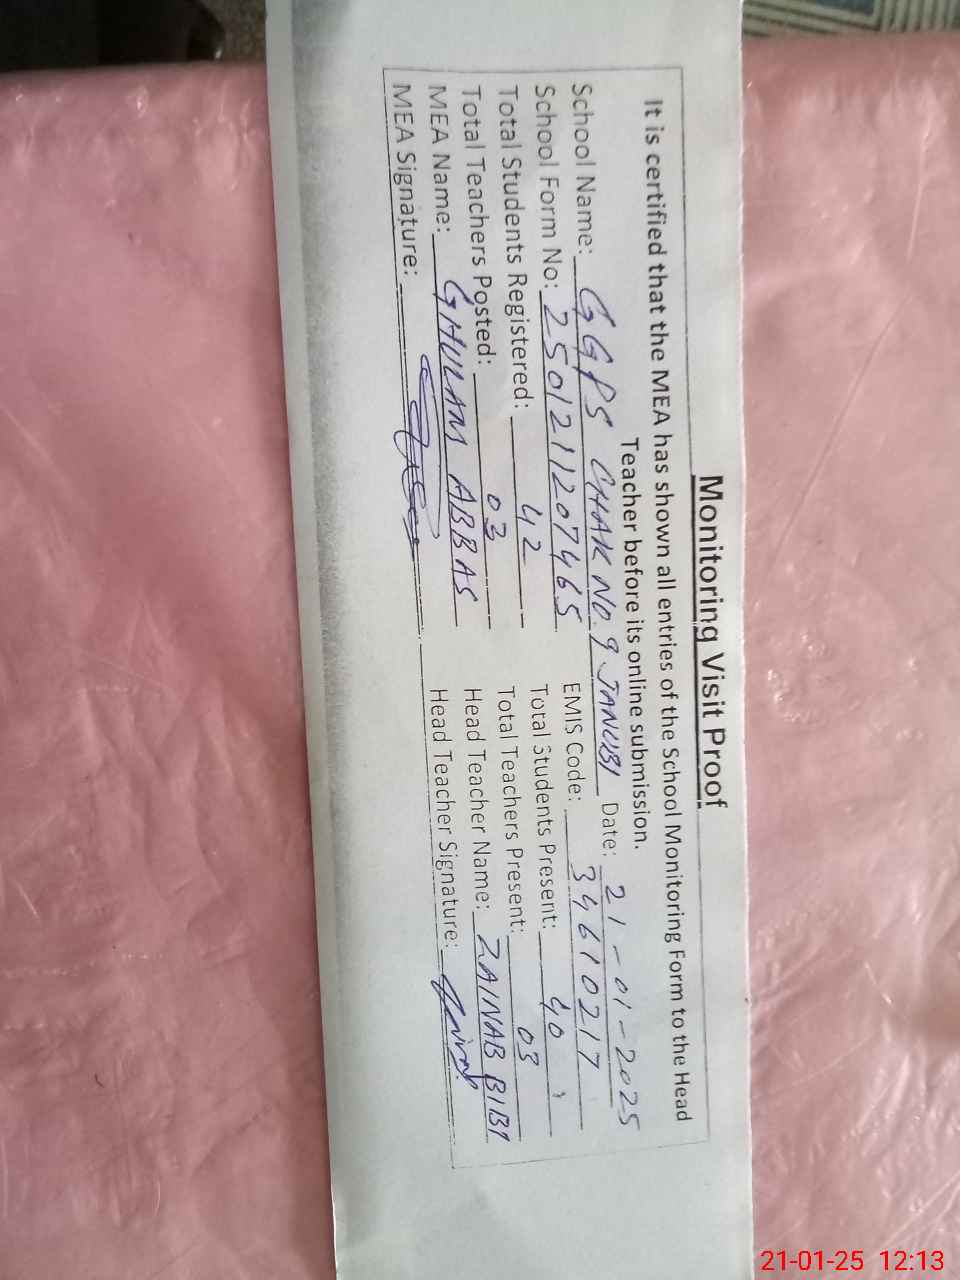 Monitoring Visit Proof
It is certified that the MEA has shown all entries of the School Monitoring Form to the Head
Teacher before its online submission.
School Name: GGPS CHAK NO. 9 JANUBI Date: 21-01-2025
School Form No: 2501211207465 EMIS Code: 34610217
Total Students Registered: 42 Total Students Present: 40
Total Teachers Posted: 03 Total Teachers Present: 03
MEA Name: GHULAM ABBAS Head Teacher Name: ZAINAB BIBI
MEA Signature: Head Teacher Signature: Zainab
21-01-25 12:13